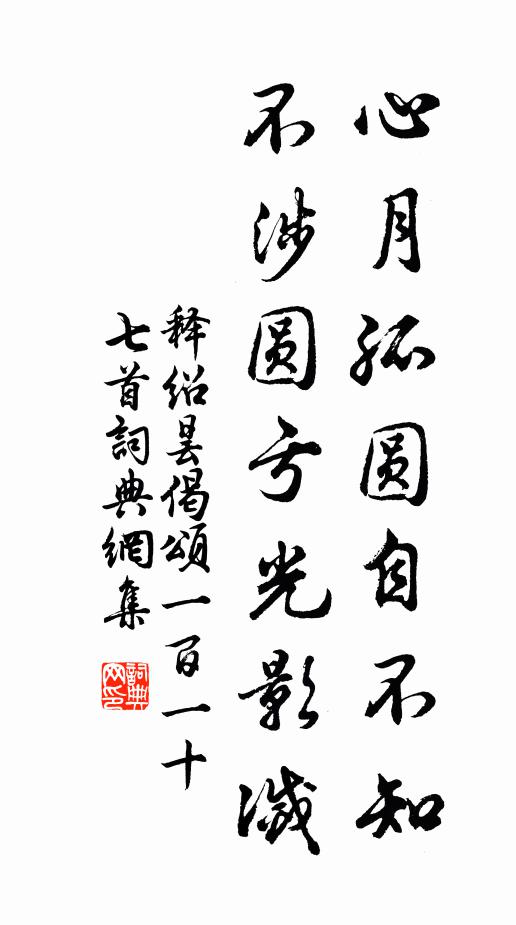 心月孤圆自不知
不涉圆亏光影灭
释绍昙偈颂一百一十
七首詞典網集
詞典
网印